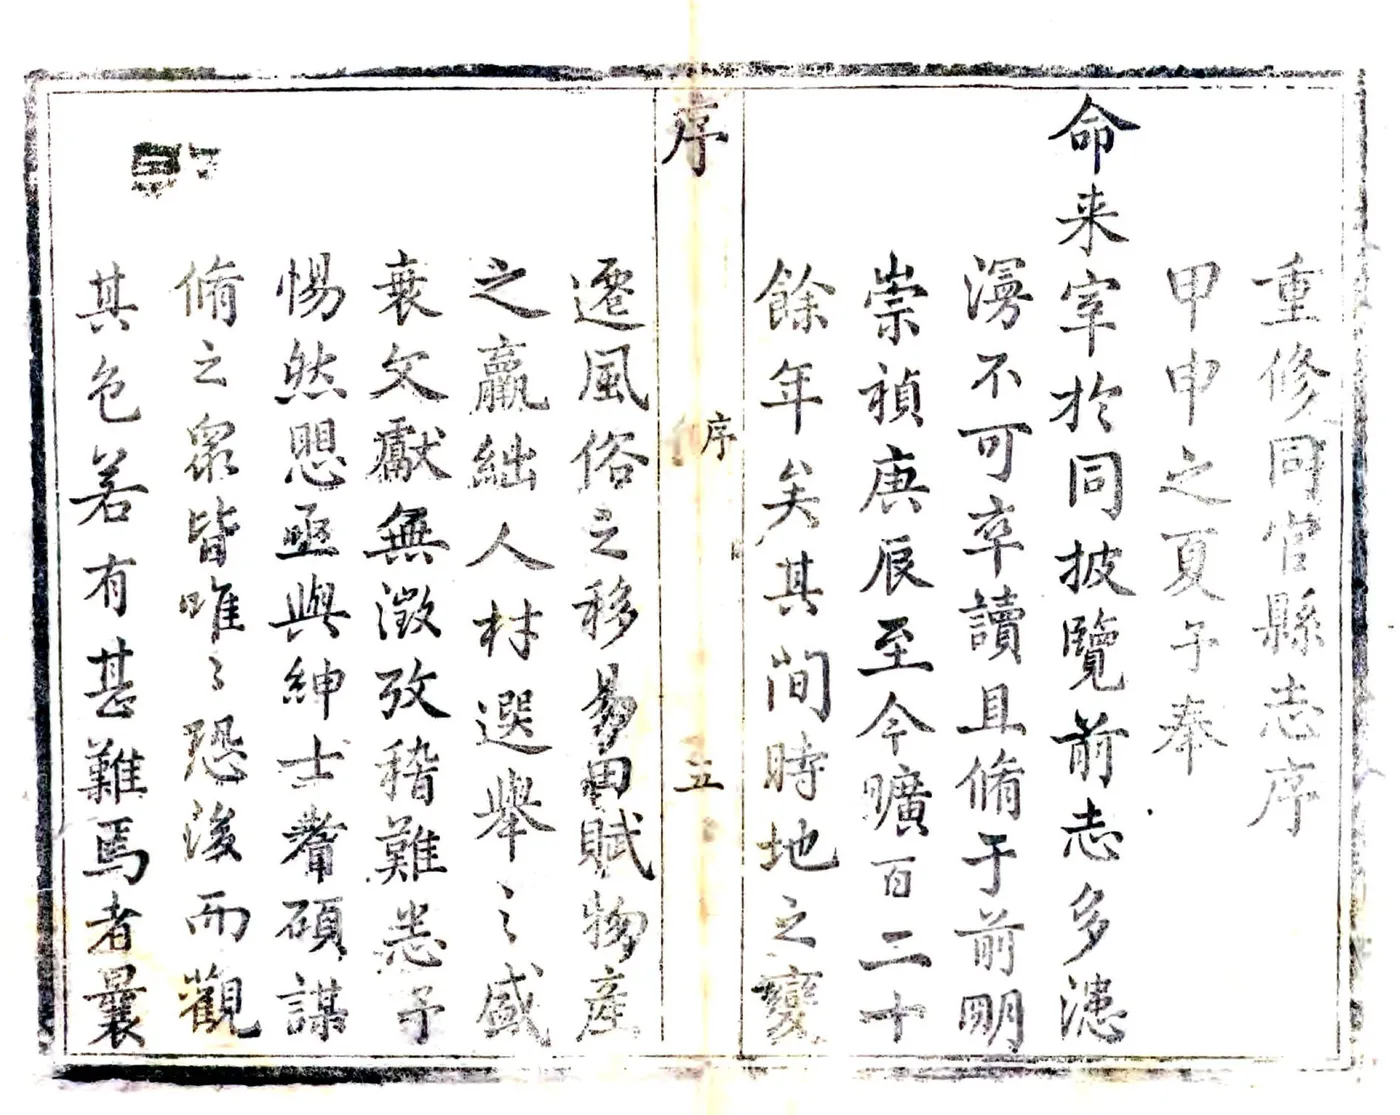 重修同官縣志序
甲申之夏予奉
命来宰於同披覽前志多漶
漫不可卒讀且脩于前明
崇禎庚辰至今曠百二十
餘年矣其間時地之變
序
序
五
遷風俗之移易田賦物產
之贏絀人材選舉之盛
衰文獻無徵攷稽難悉予
惕然思亟與紳士耆碩謀
脩之眾皆唯〻恐後而觀
其色若有甚難焉者曩